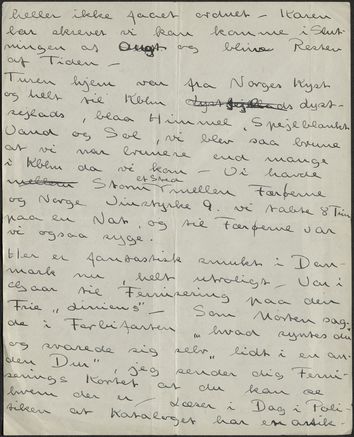 heller ikke faaet ordnet – Karen
har skrevet vi kan komme i Slut-
ningen af Augt og blive Resten
af Tiden –
Turen hjem var fra Norges Kyst
og helt til Kbhn dyst-
sejlads, blaa Himmel, Spejlblankt
Vand og Sol, vi blev saa brune
at vi var brunere end mange
i Kbhn da vi kom – Vi havde
mellem Storm et Sted mellem Færøerne
og Norge Vindstyrke 9. vi tabte 8 Tim
paa en Nat, og til Færøerne var
vi ogsaa syge.
Her er fantastisk smukt i Dan-
mark nu, helt utroligt – Var i
Gaar til Fernisering paa den
Frie "Liniens" – Som Morten sag-
de i Forbifarten "hvad syntes du
og svarede sig selv "lidt i en an-
den Dur", jeg sender dig Ferni-
serings Kortet at du kan se
hvem der er – Læser i Dag i Poli-
tiken at Kataloget har en artik-